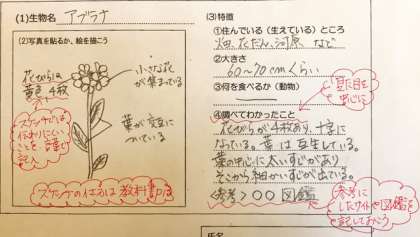 (1)生物名 アブラナ
(2)写真を貼るか、絵を描こう
花びらは
黄色 4枚
小さな花
が集まっている
葉が交互に
ついている
スケッチでは
伝わりにくい
ことを言葉で
記入
スケッチのしかたは教科書p.8
(3)特徴
①住んでいる(生えている)ところ
畑、花だん、河原 など
②大きさ
60〜70cmくらい
③何を食べるか(動物)
④調べてわかったこと
花びらが4枚あり、十字に
なっている。葉は互生している。
葉の中心に太いすじがあり
そこから細かいすじが出ている。
<参考> ○○図鑑
参考に
したサイトや図鑑を
記しておこう
氏名